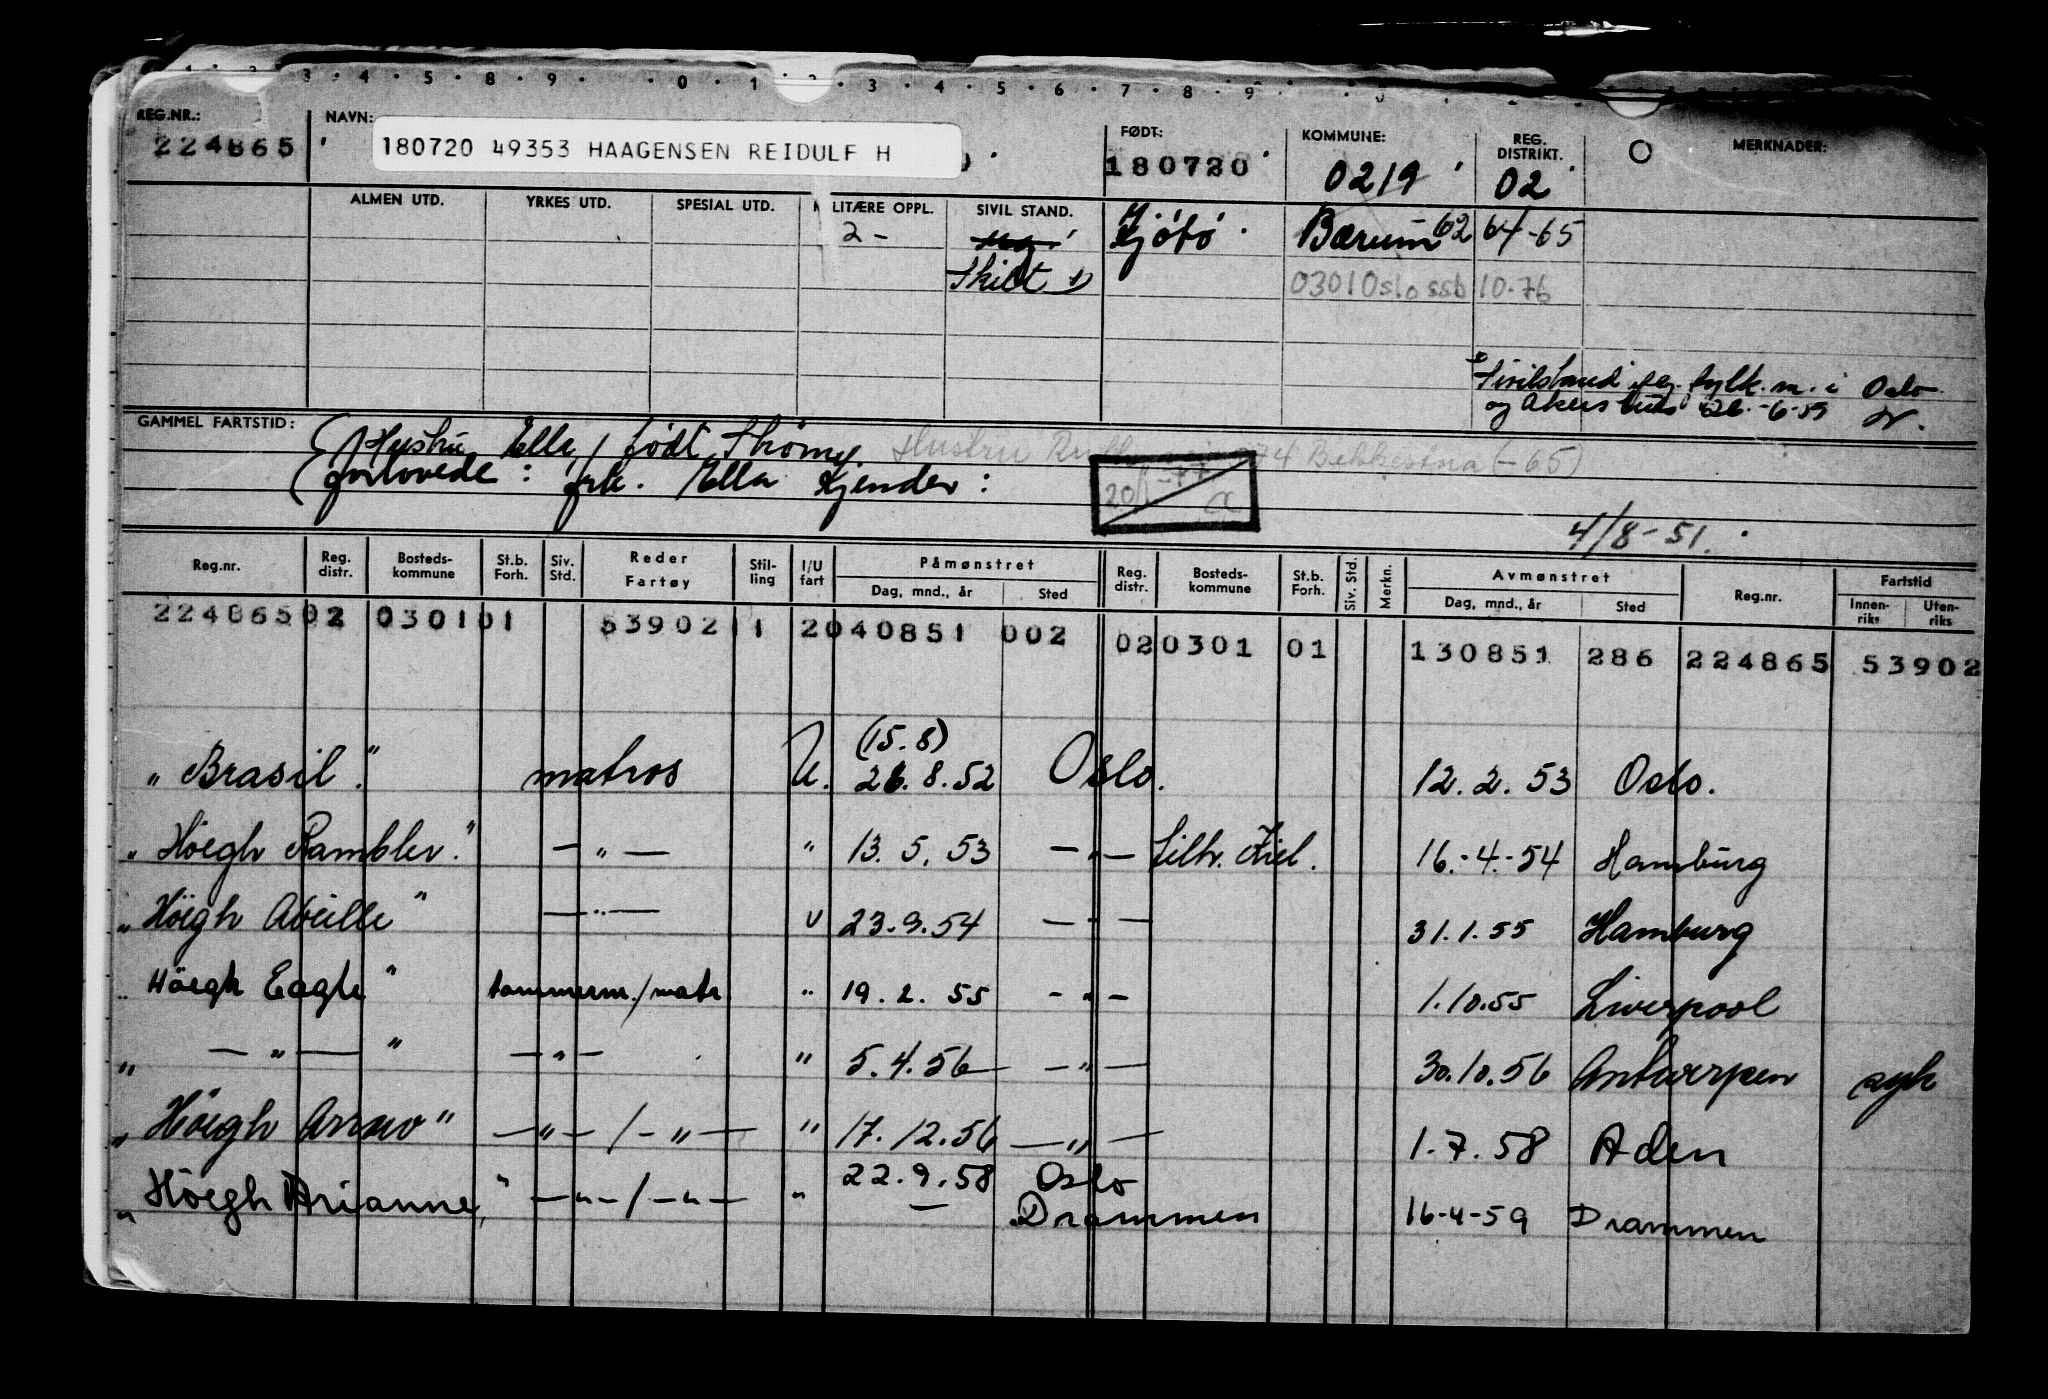 3 · 4 · 5 · 8 · 9 · · 0 · 1 · 2 · 3 · 4 · 5 · 6 · 7 · 8 · 9
REG.NR.: NAVN: FØDT: KOMMUNE: REG. DISTRIKT. MERKNADER:
224865 180720 49353 HAAGENSEN REIDULF H 180720 0219 02
ALMEN UTD. YRKES UTD. SPESIAL UTD. LITÆRE OPPL. SIVIL STAND.
2 - ug. Bærum 62 64-65
Skilt 0301 Oslo ssb 10.76
Sivilstand fylk. m. i Oslo
og Akershus 26-6-59
GAMMEL FARTSTID: Hustru Ella, født Hustru 74 Bekkestua (-65)
forlovede: frk. Ella Kjender:
20 -77 a
4/8-51.
Reg.nr. Reg. distr. Bosteds-kommune St.b. Forh. Siv. Std. Reder Fartøy Stil-ling I/U fart Påmønstret Dag, mnd., år Sted Reg. distr. Bosteds-kommune St.b. Forh. Siv. Std. Merkn. Avmønstret Dag, mnd., år Sted Reg.nr. Fartstid Innen-riks Uten-riks
224865 02 0301 01 53902 11 2 040851 002 02 0301 01 130851 286 224865 53902
(15.8)
"Brasil." matros U. 26.8.52 Oslo. 12.2.53 Oslo.
"Höegh Rambler." — " — " 13.5.53 — " — Kiel. 16.-4.-54 Hamburg
"Höegh Abeille" — " — U 23.9.54 — " — 31.1.55 Hamburg
"Höegh Eagle" tømmerm./matr. " 19.2.55 - " - 1.10.55 Liverpool
" — " — " — " — " 5.4.56 — " — 30.10.56 Antwerpen
"Höegh Arrow" — " — / — " — " 17.12.56 — " — 1.7.58 Aden
22.9.58 Oslo
"Höegh Arianne," — " — / — " — " — Drammen 16-4-59 Drammen